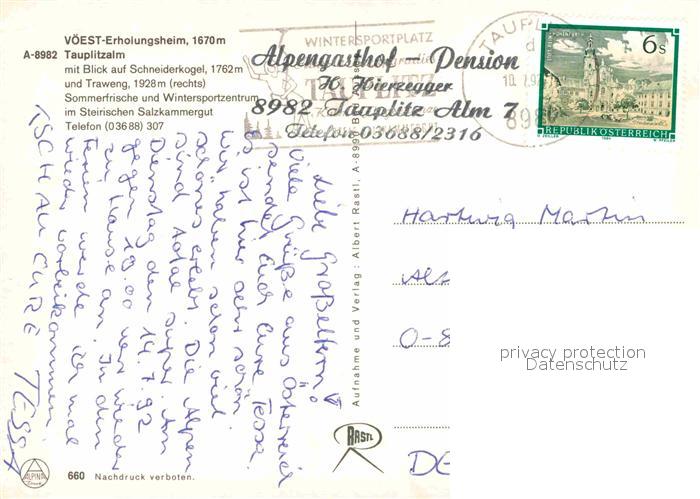 VÖEST-Erholungsheim, 1670m
A-8982 Tauplitzalm
mit Blick auf Schneiderkogel, 1762m
und Traweng, 1928m (rechts)
Sommerfrische und Wintersportzentrum
im Steirischen Salzkammergut
Telefon (03688) 307
WINTERSPORTPLATZ
TAUPLITZ
Alpengasthof - Pension
H. Hierzegger
8982 Tauplitz Alm 7
Telefon 03688/2316
6 S
REPUBLIK ÖSTERREICH
Liebe Großeltern!
Viele Grüße aus Österreich
sendet Euch Eure Tessa.
Es ist hier sehr schön
Wir haben schon viel
schönes erlebt. Die Alpen
sind total super. Am
Dienstag den 14.7.92
gegen 18.00 Uhr wieder
zu Hause an. In den
Ferien werde ich mal
wieder vorbeikommen
TSCHAU EURE TESSA
Aufnahme und Verlag: Albert Rastl, A-899
Hartwig Martin
O-8
DE
privacy protection
Datenschutz
RASTL
ALPINA
660 Nachdruck verboten.